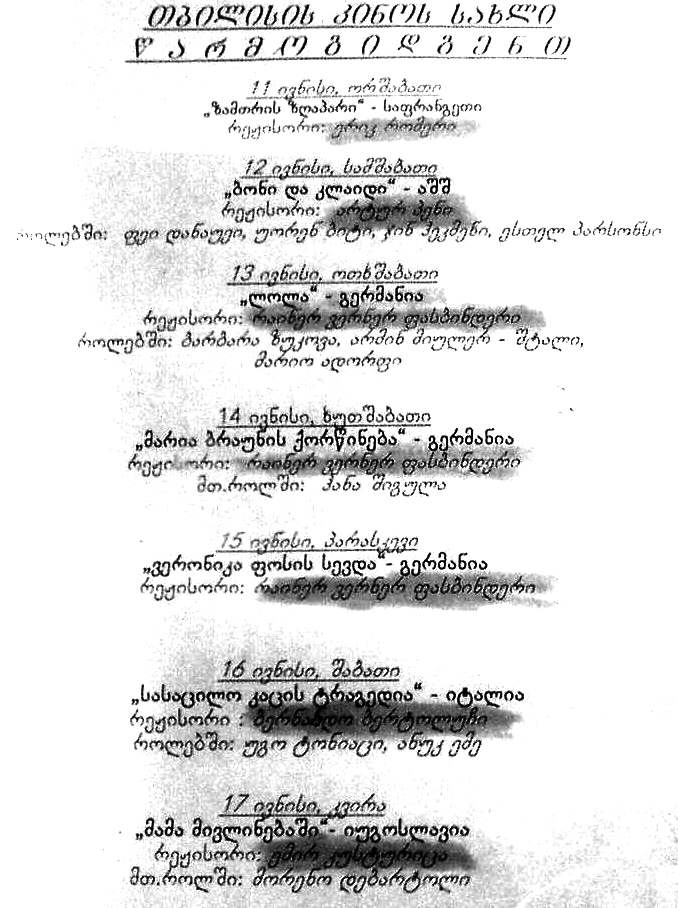 თბილისის კინოს სახლი
წ ა რ მ ო გ ი დ გ ე ნ თ
11 ივნისი, ორშაბათი
„ზამთრის ზღაპარი“ - საფრანგეთი
რეჟისორი: ერიკ რომერი
12 ივნისი, სამშაბათი
„ბონი და კლაიდი“ - აშშ
რეჟისორი: არტურ პენი
როლებში: ფეი დანაუეი, უორენ ბიტი, ჯინ ჰეკმენი, ესთელ პარსონსი
13 ივნისი, ოთხშაბათი
„ლოლა“ - გერმანია
რეჟისორი: რაინერ ვერნერ ფასბინდერი
როლებში: ბარბარა ზუკოვა, არმინ მიულერ - შტალი,
მარიო ადორფი
14 ივნისი, ხუთშაბათი
„მარია ბრაუნის ქორწინება“ - გერმანია
რეჟისორი: რაინერ ვერნერ ფასბინდერი
მთ.როლში: ჰანა შიგულა
15 ივნისი, პარასკევი
„ვერონიკა ფოსის სევდა“- გერმანია
რეჟისორი: რაინერ ვერნერ ფასბინდერი
16 ივნისი, შაბათი
„სასაცილო კაცის ტრაგედია“ - იტალია
რეჟისორი : ბერნარდო ბერტოლუჩი
როლებში: უგო ტონიაცი, ანუკ ემე
17 ივნისი, კვირა
„მამა მივლინებაში“- იუგოსლავია
რეჟისორი: ემირ კუსტურიცა
მთ.როლში: მორენო დებარტოლი